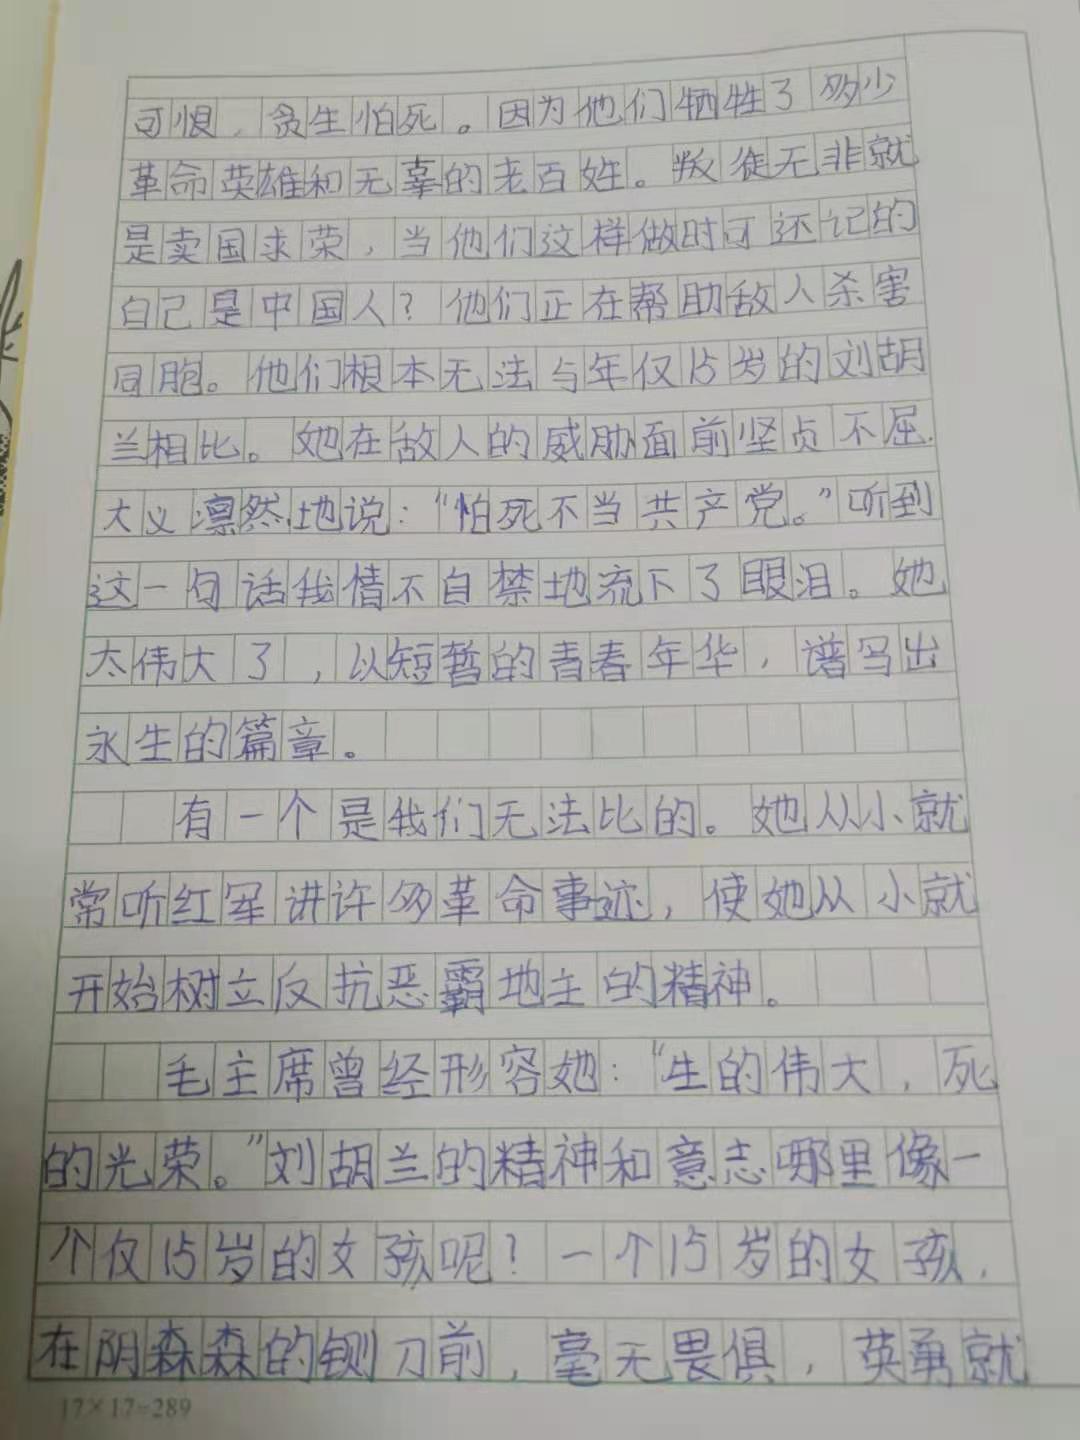 可恨，贪生怕死。因为他们牺牲了多少
革命英雄和无辜的老百姓。叛徒无非就
是卖国求荣，当他们这样做时可还记的
自己是中国人？他们正在帮助敌人杀害
同胞。他们根本无法与年仅15岁的刘胡
兰相比。她在敌人的威胁面前坚贞不屈.
大义凛然地说：“怕死不当共产党。”听到
这一句话我情不自禁地流下了眼泪。她
太伟大了，以短暂的青春年华，谱写出
永生的篇章。
有一个是我们无法比的。她从小就
常听红军讲许多革命事迹，使她从小就
开始树立反抗恶霸地主的精神。
毛主席曾经形容她：“生的伟大，死
的光荣。”刘胡兰的精神和意志哪里像一
个仅15岁的女孩呢？一个15岁的女孩，
在阴森森的铡刀前，毫无畏惧，英勇就
17×17=289